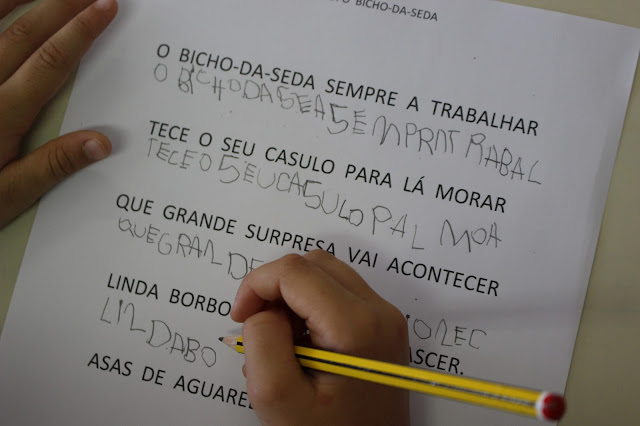 BICHO-DA-SEDA
O BICHO-DA-SEDA SEMPRE A TRABALHAR
O BICHODA5EA5EMPRAT RABAL
TECE O SEU CASULO PARA LÁ MORAR
TECEO5EUCA5ULOPAL MOA
QUE GRANDE SURPRESA VAI ACONTECER
QUEGRANDE IONEC
LINDA BORBO ASCER.
LINDABO
ASAS DE AGUARE